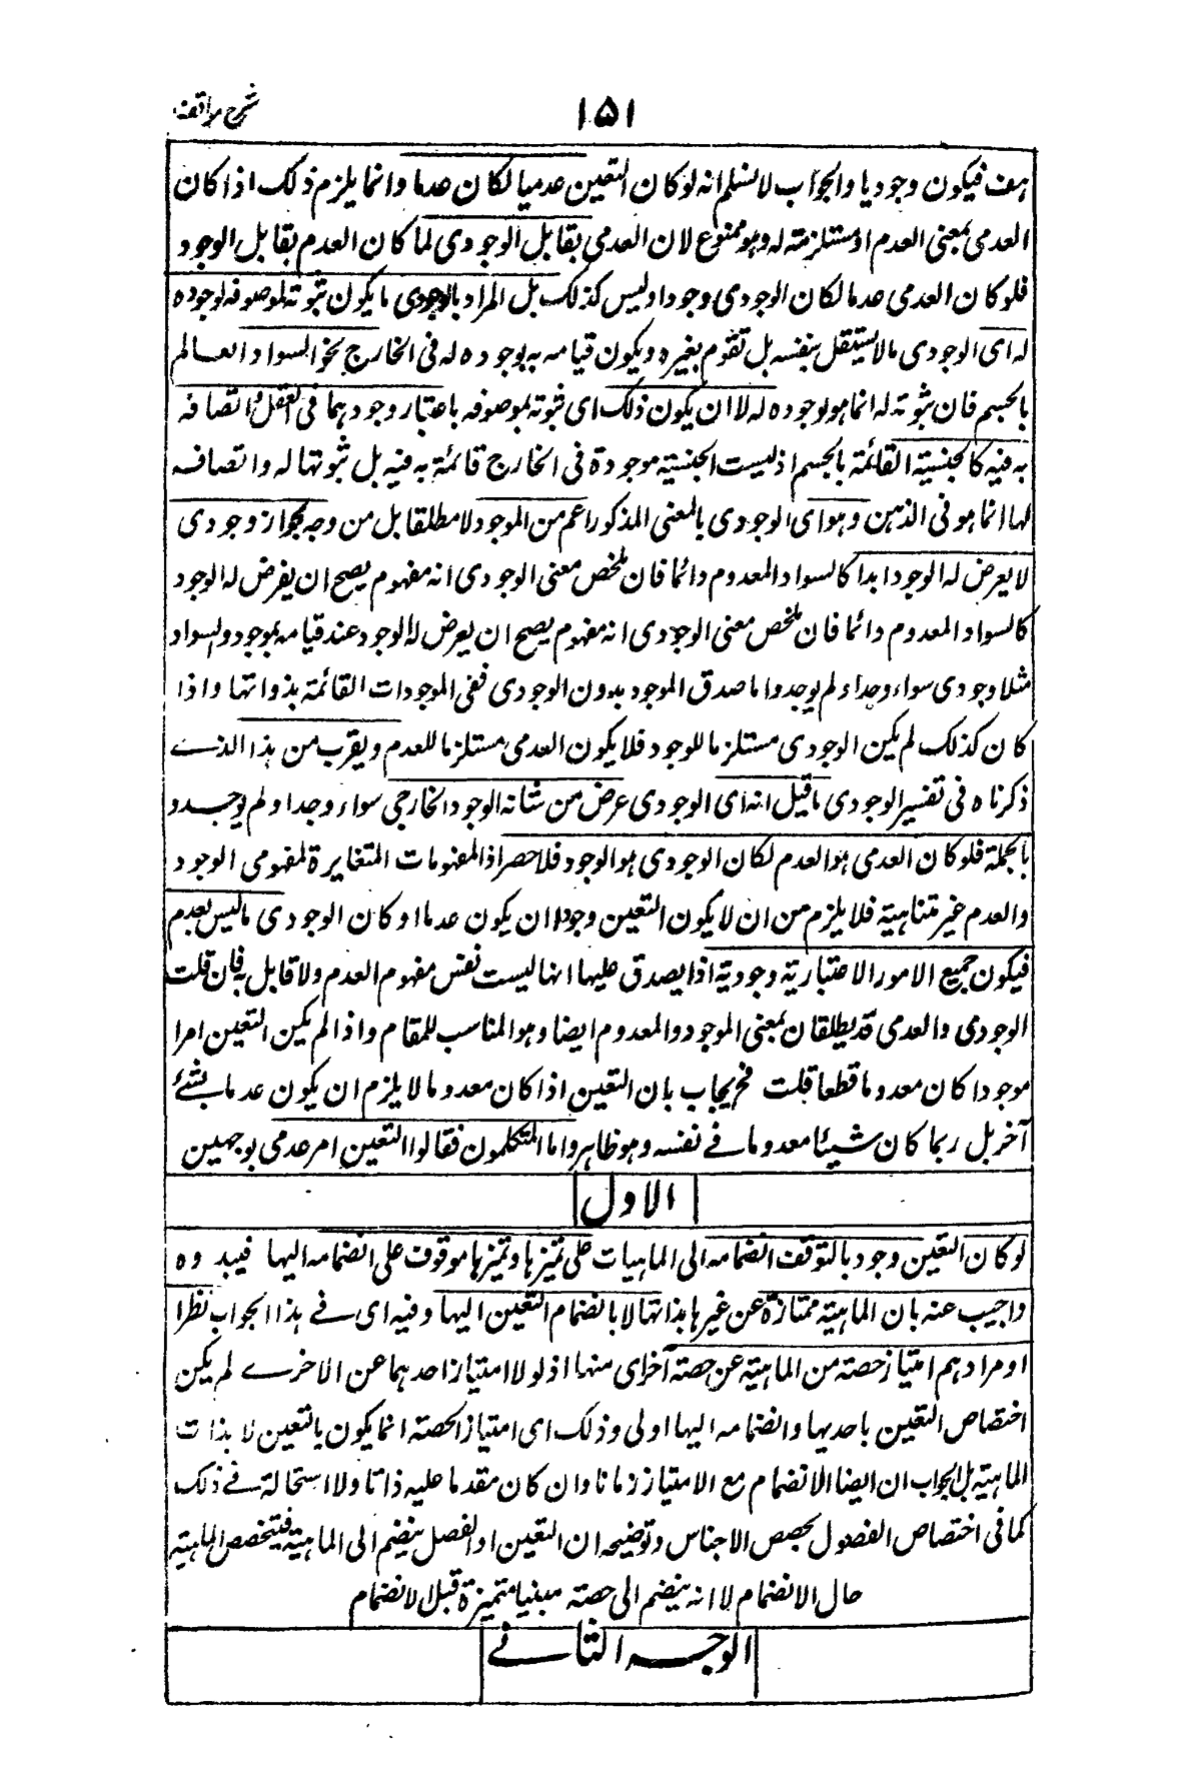 شرح مواقف
١٥١
هف فيكون وجوديا والجواب لا نسلم انه لو كان التعين عدميا لكان عدما وانما يلزم ذلك اذا كان
العدمى بمعنى العدم او مستلزمة له وهو ممنوع لان العدمى يقابل الوجودى لما كان العدم يقابل الوجود
فلو كان العدمى عدما لكان الوجودى وجودا وليس كذلك بل المراد بالوجودى ما يكون ثبوته لموصوفه لوجوده
له اى الوجودى ما لا يستقل بنفسه بل تقوم بغيره ويكون قيامه به بوجوده له فى الخارج نحو السواد العالم
بالجسم فان ثبوته له انما هو لوجوده له لا ان يكون ذلك اى ثبوته لموصوفه باعتبار وجودهما فى العقل واتصافه
به فيه كالجنسية القائمة بالجسم اذ ليست الجنسية موجودة فى الخارج قائمة به فيه بل ثبوتها له واتصافه
لها انما هو فى الذهن وهو اى الوجودى بالمعنى المذكور اعم من الموجود لا مطلقا بل من وجه لجواز وجودى
لا يعرض له الوجود ابدا كالسواد المعدوم دائما فان ملخص معنى الوجودى انه مفهوم يصح ان يفرض له الوجود
كالسواد المعدوم دائما فان ملخص معنى الوجودى انه مفهوم يصح ان يعرض له الوجود عند قيامه بموجود والسواد
مثلا وجودى سواء وجد او لم يوجد واما صدق الموجود بدون الوجودى ففى الموجودات القائمة بذواتها واذا
كان كذلك لم يكن الوجودى مستلزما للوجود فلا يكون العدمى مستلزما للعدم ويقرب من هذا الذى
ذكرناه فى تفسير الوجودى ما قيل انه اى الوجودى عرض من شانه الوجود الخارجى سواء وجد او لم يوجد و
بالجملة فلو كان العدمى هو العدم لكان الوجودى هو الوجود فلا حصر اذ المفهومات المتغايرة لمفهومى الوجود
والعدم غير متناهية فلا يلزم من ان لا يكون التعين وجودا ان يكون عدما او كان الوجودى ما ليس بعدم
فيكون جميع الامور الاعتبارية وجودية اذا يصدق عليها انها ليست نفس مفهوم العدم ولا قابل به فان قلت
الوجودى والعدمى قد يطلقان بمعنى الموجود والمعدوم ايضا وهو المناسب للمقام واذا لم يكن التعين امرا
موجودا كان معدوما قطعا قلت فح يجاب بان التعين اذا كان معدوما لا يلزم ان يكون عدما بشئ
آخر بل ربما كان شيئا معدوما فى نفسه وهو ظاهر واما المتكلمون فقالوا التعين امر عدمى بوجهين
الاول
لو كان التعين وجوديا لتوقف انضمامه الى الماهيات على تميزها وتميزها موقوف على انضمامه اليها فيبدوه
واجيب عنه بان الماهية ممتازة عن غيرها بذاتها لا بانضمام التعين اليها وفيه اى فى هذا الجواب نظرا
او مرادهم امتياز حصته من الماهية عن حصته آخرى منها اذ لولا امتياز احدهما عن الاخرى لم يكن
اختصاص التعين باحديها وانضمامه اليها اولى وذلك اى امتياز الحصته انما يكون بالتعين لا بذات
الماهية بل الجواب ان ايضا الانضمام مع الامتياز زمانا وان كان مقدما عليه ذاتا ولا استحالة فى ذلك
كما فى اختصاص الفصول بحصص الاجناس وتوضيحه ان التعين او الفصل ينضم الى الماهية فيتخصص الماهية
حال الانضمام لا انه ينضم الى حصته مبنيا متميزة قبل الانضمام
الوجه الثانى